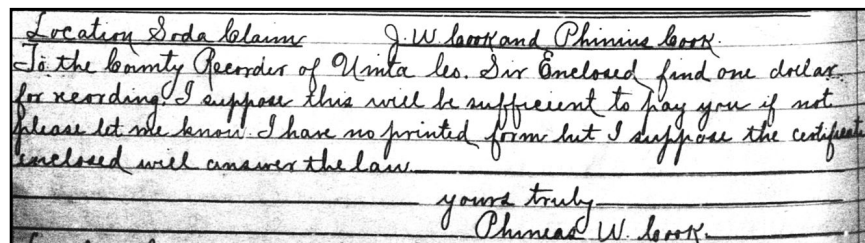 Location Soda Claim J. W Cook and Phinius Cook.
To the County Recorder of Uinta Co. Sir Enclosed find one dollar
for recording. I suppose this will be sufficient to pay you if not
please let me know I have no printed form but I suppose the certificate
enclosed will answer the law
yours truly
Phineas W. Cook.